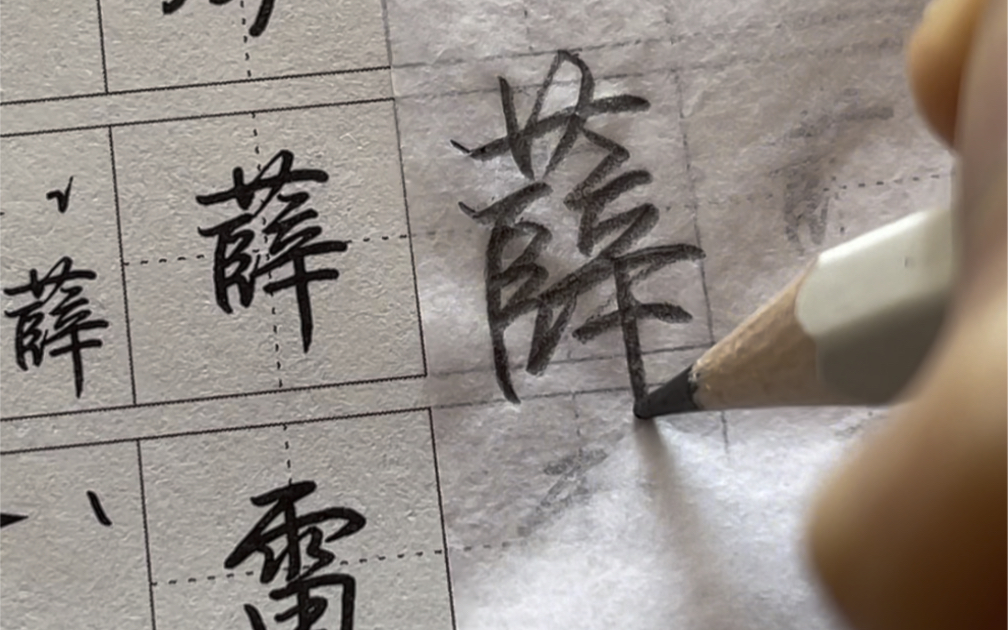 薛 薛 薛
雷